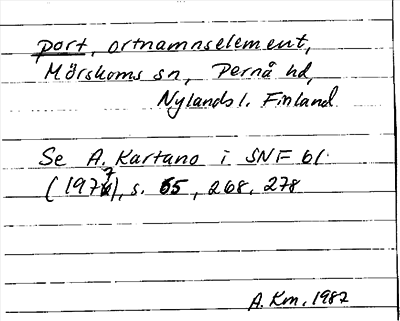 port, ortnamnselement,
Mörskoms sn, Pernå hd,
Nylands l. Finland
Se A. Kartano i SNF 61.
(197), s. 65, 268, 278
A. Km, 1987